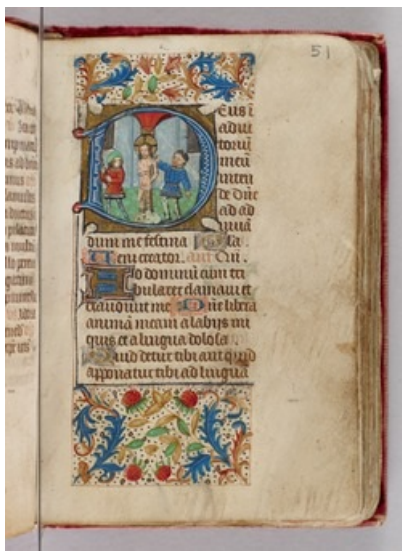 51
Deus ī
adiu
toriū
meū
inten
de dn̄e
ad ad
iuuā
dum me festina Gl̄a.
Ueni creator. ant
Ad dominū cum tri
bularer clamaui et
exaudiuit me Dn̄e libera
animā meam a labijs ini
quis et a lingua dolosa
Quid detur tibi aut quid
apponatur tibi ad lingua